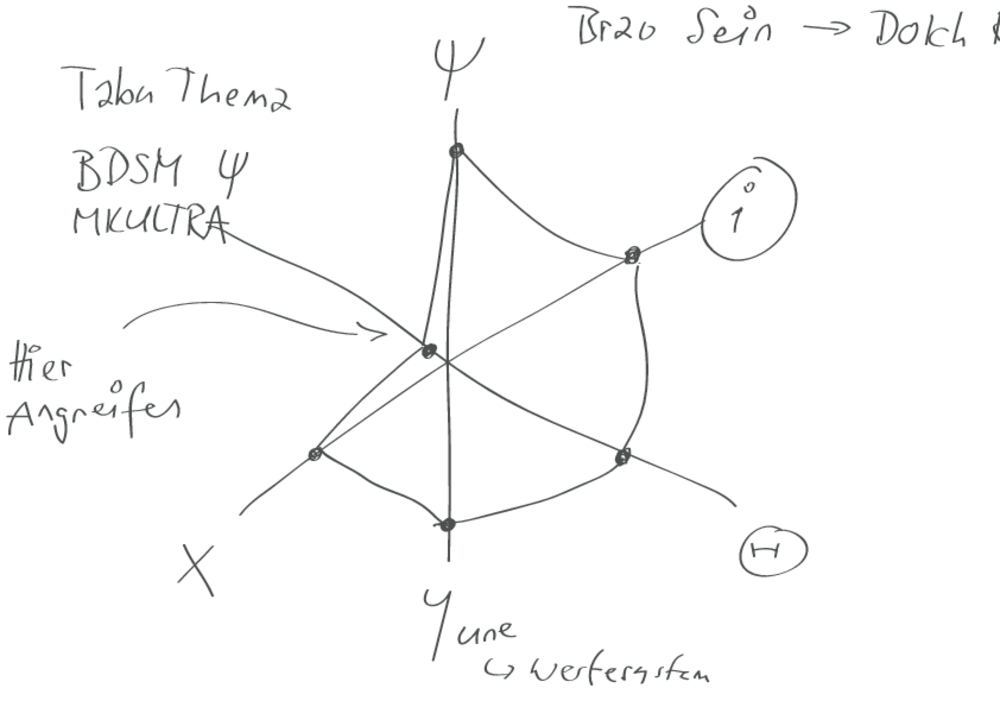 Brav Sein → Dolch
Ψ
Tabu Thema
BDSM Ψ
MKULTRA
i
Hier
Angreifen
X
H
Y une
↳ Wertesystem